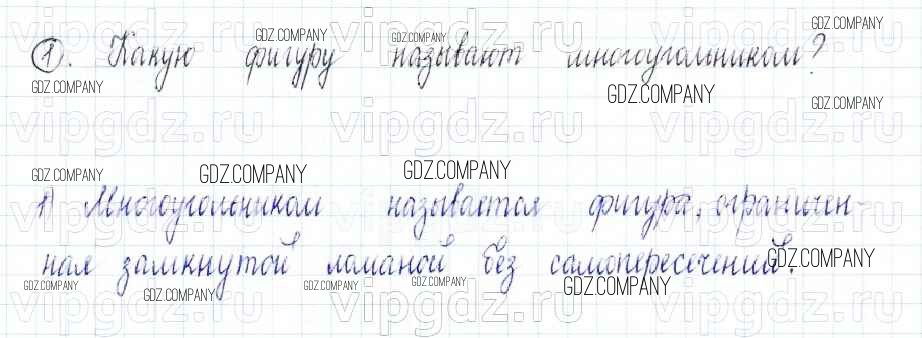 1. Какую фигуру называют многоугольником?
1) Многоугольником называется фигура, ограничен-
ная замкнутой ломаной без самопересечений.